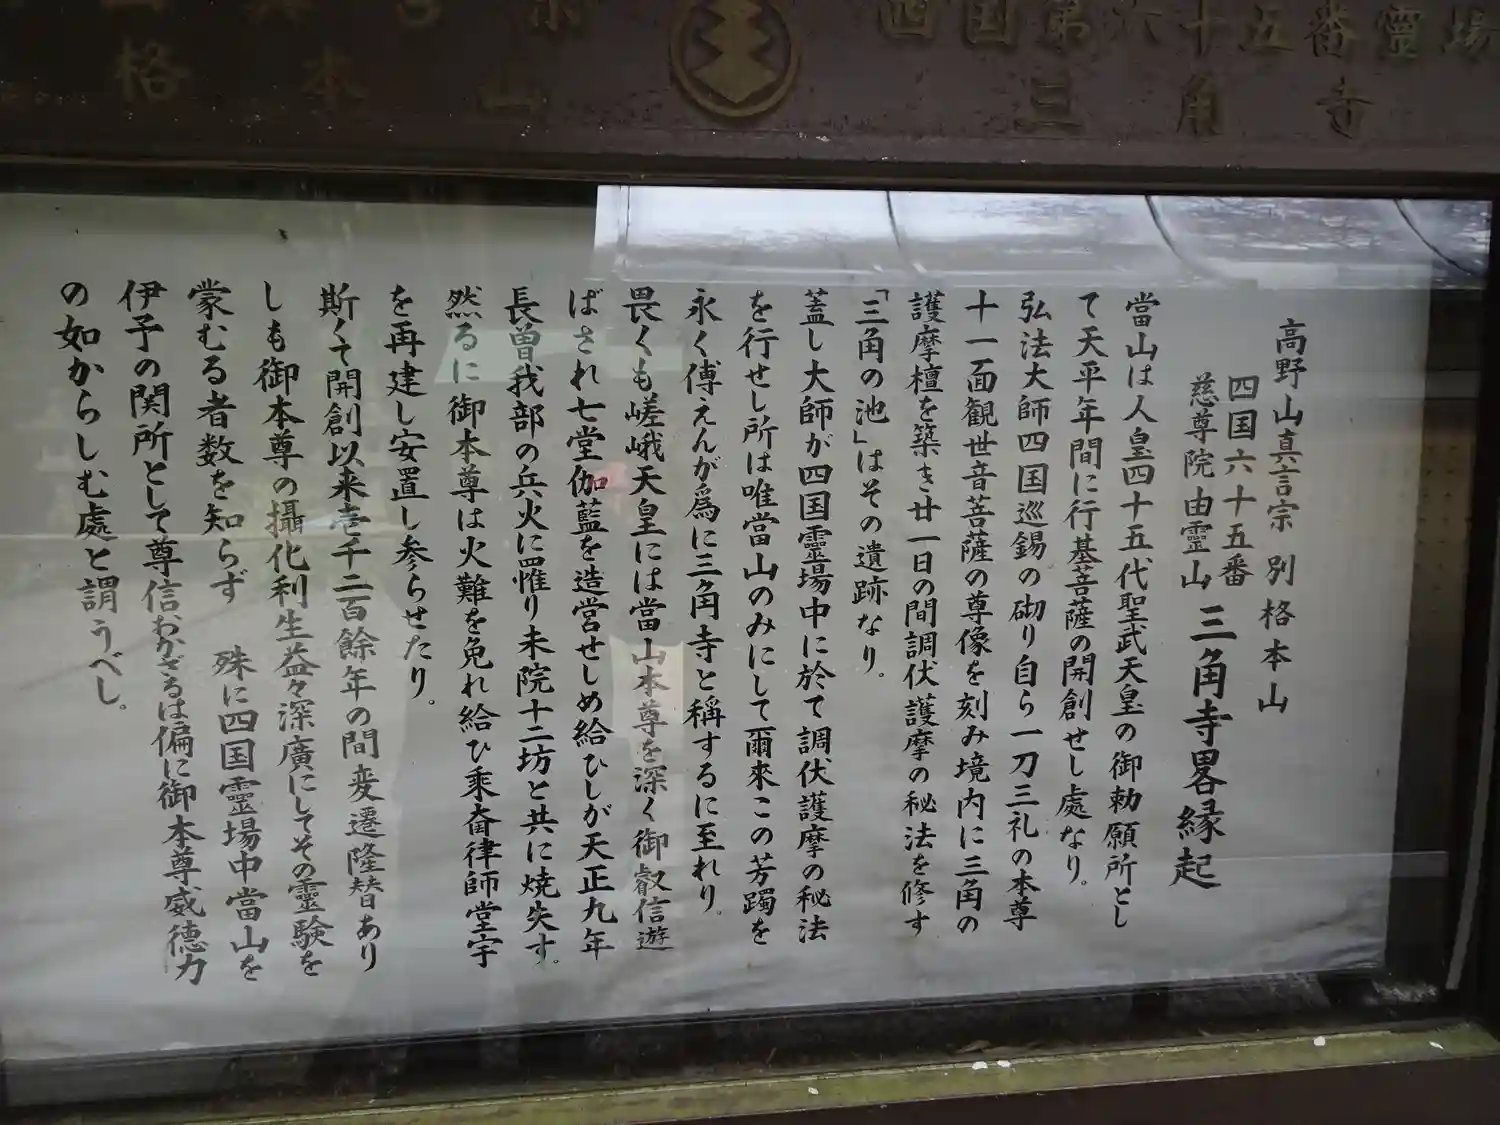 四国第六十五番霊場
格本山
三角寺
高野山真言宗 別格本山
四国六十五番
慈尊院由靈山
三角寺畧縁起
當山は人皇四十五代聖武天皇の御勅願所とし
て天平年間に行基菩薩の開創せし處なり。
弘法大師四国巡錫の砌り自ら一刀三礼の本尊
十一面観世音菩薩の尊像を刻み境内に三角の
護摩檀を築き廿一日の間調伏護摩の秘法を修す
「三角の池」はその遺跡なり。
蓋し大師が四国靈場中に於て調伏護摩の秘法
を行せし所は唯當山のみにして爾來この芳躅を
永く傳えんが爲に三角寺と稱するに至れり。
畏くも嵯峨天皇には當山本尊を深く御叡信遊
ばされ七堂伽藍を造営せしめ給ひしが天正九年
長曽我部の兵火に罹り末院十二坊と共に焼失す。
然るに御本尊は火難を免れ給ひ乘奝律師堂宇
を再建し安置し参らせたり。
斯くて開創以来壱千二百餘年の間変遷隆替あり
しも御本尊の攝化利生益々深廣にしてその靈験を
蒙むる者数を知らず 殊に四国靈場中當山を
伊予の関所として尊信おかざるは偏に御本尊威徳力
の如からしむ處と謂うべし。